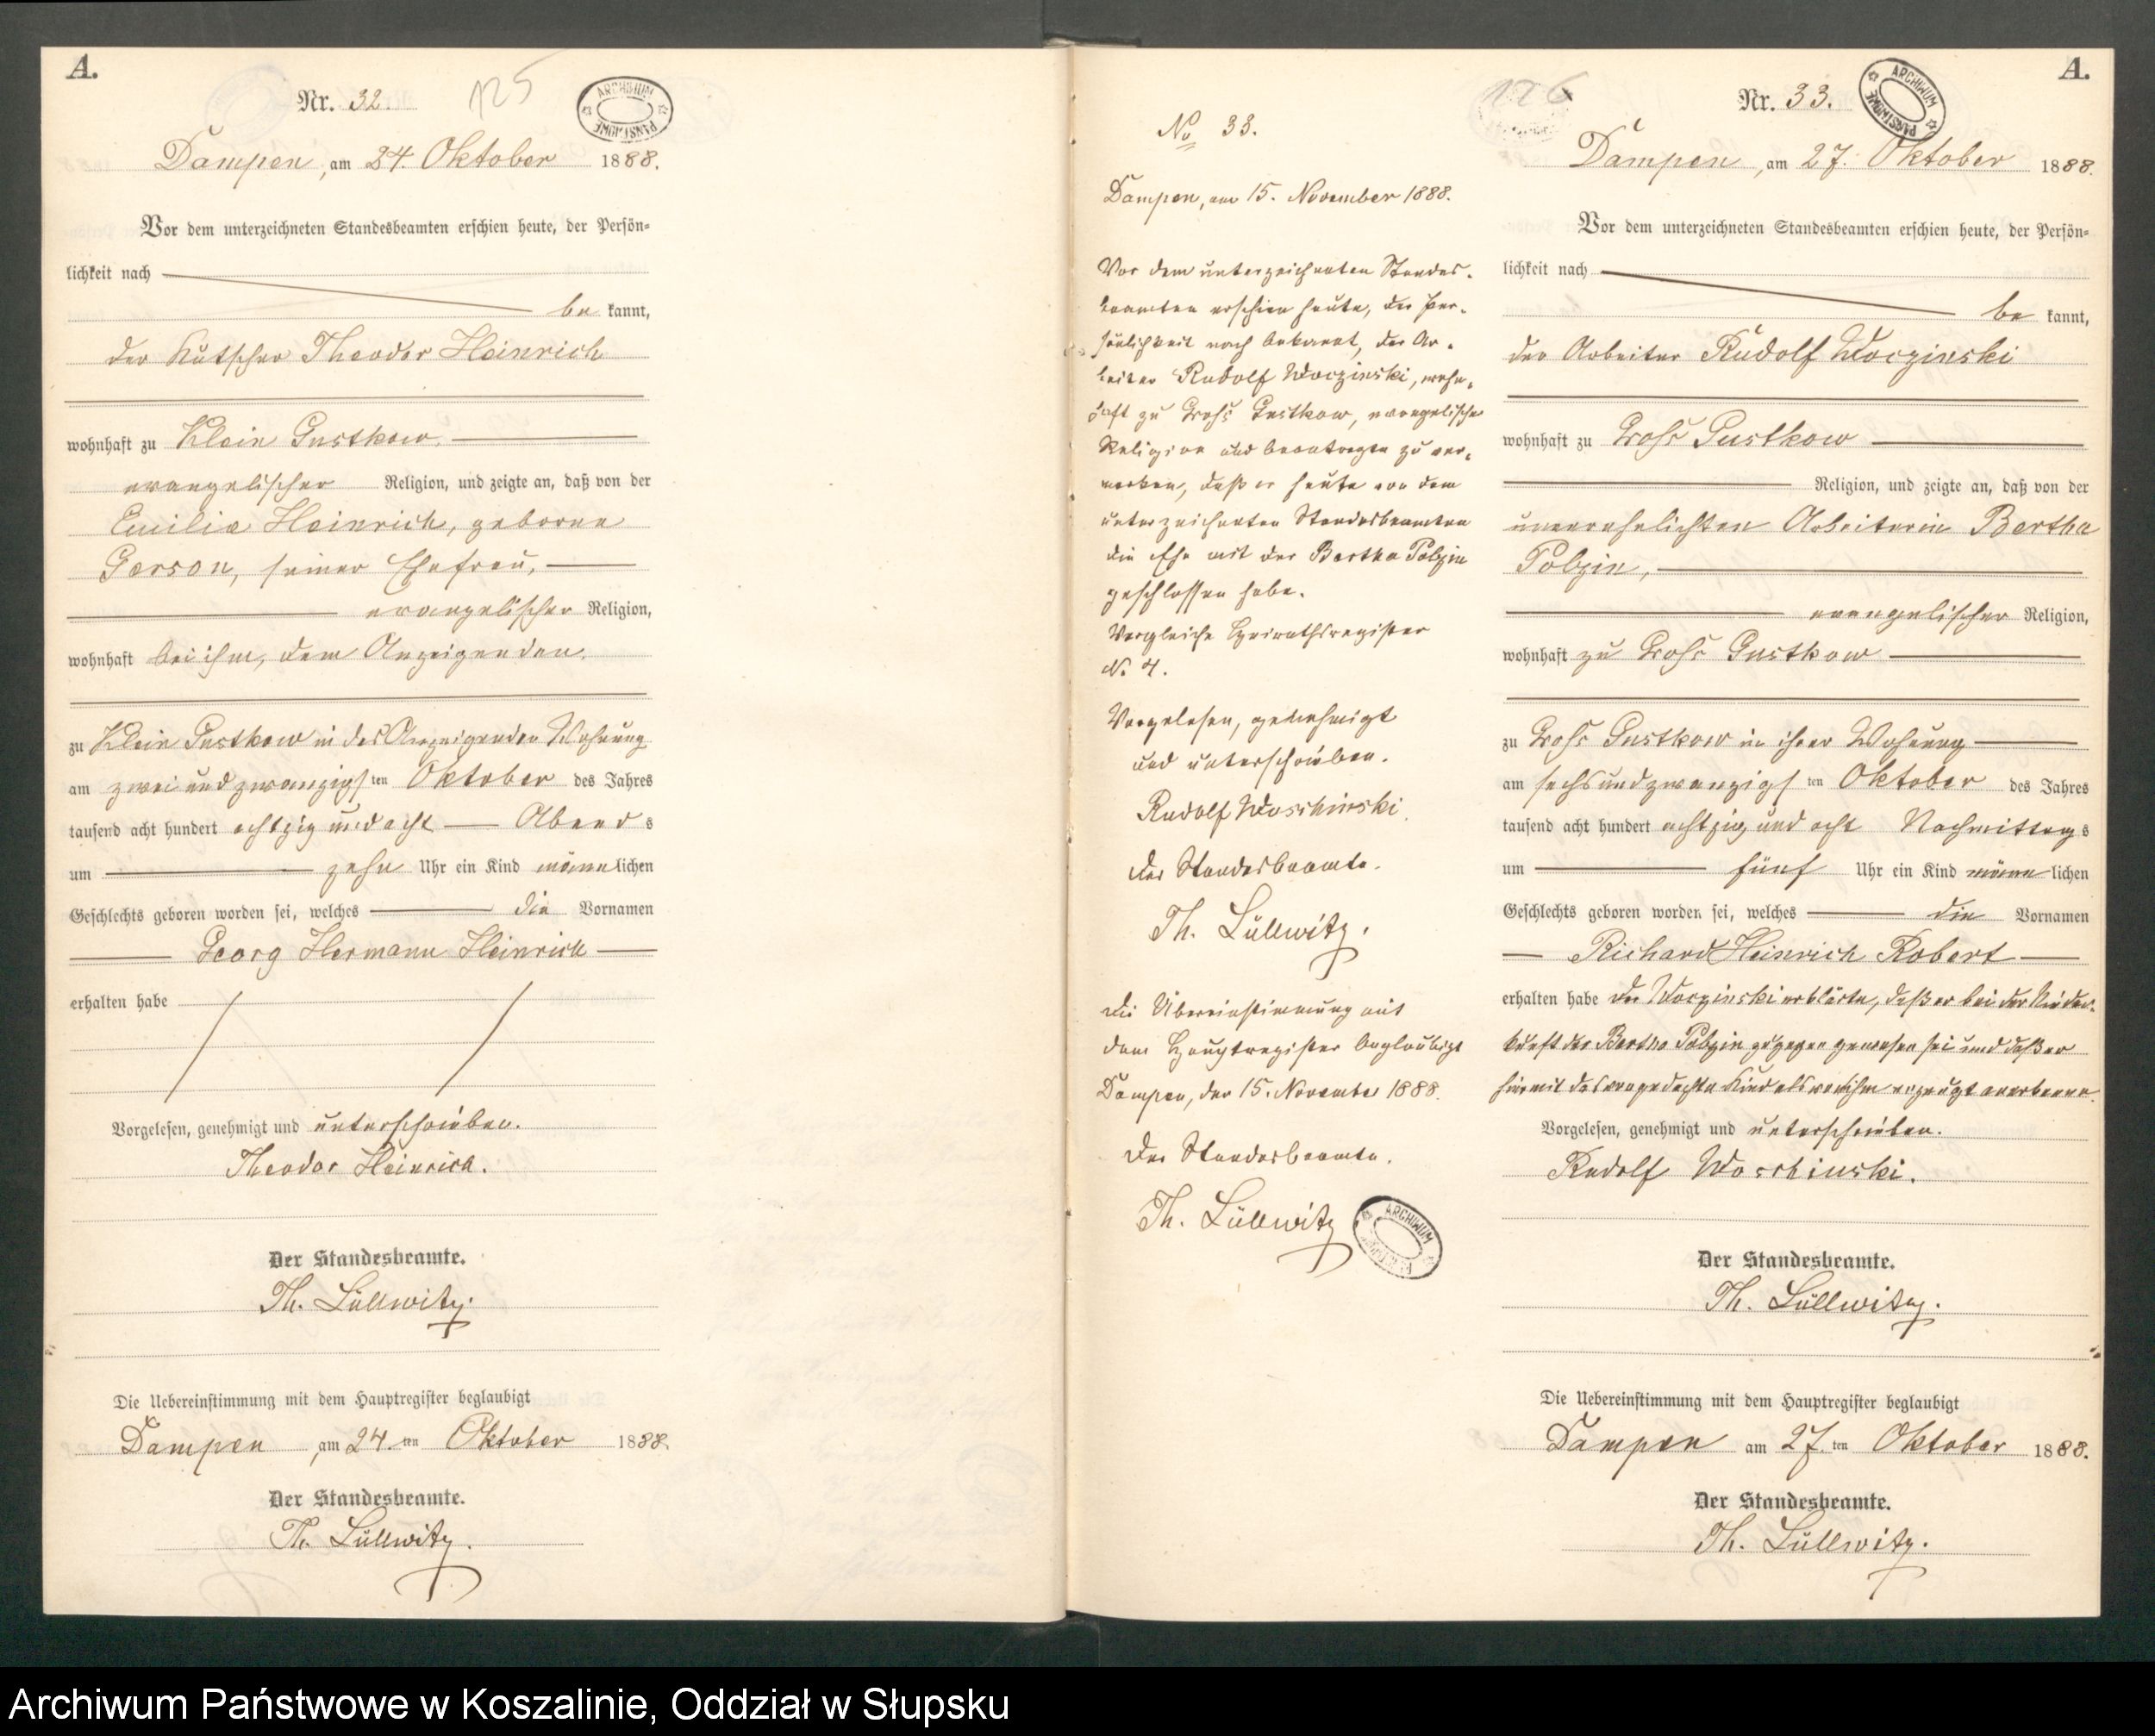 A.
Nr. 32.
125
ARCHIWUM PAŃSTWOWE
Dampen, am 24. Oktober 1888.
Vor dem unterzeichneten Standesbeamten erschien heute, der Persön-
lichkeit nach
be kannt,
der Kutscher Theodor Heinrich
wohnhaft zu Klein Gustkow
evangelischer Religion, und zeigte an, daß von der
Emilie Heinrich, geborne
Gerson, seiner Ehefrau,
evangelischer Religion,
wohnhaft bei ihm, dem Anzeigenden.
zu Klein Gustkow in des Anzeigenden Wohnung
am zwei und zwanzigs ten Oktober des Jahres
tausend acht hundert achtzig und acht Abend s
um zehn Uhr ein Kind männ lichen
Geschlechts geboren worden sei, welches die Vornamen
Georg Hermann Heinrich
erhalten habe
Vorgelesen, genehmigt und unterschrieben.
Theodor Heinrich.
Der Standesbeamte.
Th. Lüllwitz.
Die Uebereinstimmung mit dem Hauptregister beglaubigt
Dampen, am 24. ten Oktober 1888.
Der Standesbeamte.
Th. Lüllwitz.
No 33.
Dampen, am 15. November 1888.
Vor dem unterzeichneten Standes-
beamten erschien heute, der Per-
sönlichkeit nach bekannt, der Ar-
beiter Rudolf Woczinski, wohn-
haft zu Groß Gustkow, evangelischer
Religion und beantragte zu ver-
merken, daß er heute von dem
unterzeichneten Standesbeamten
die Ehe mit der Bertha Polzin
geschlossen habe.
Vergleiche Heirathsregister
No 4.
Vorgelesen, genehmigt
und unterschrieben.
Rudolf Woschinski.
Der Standesbeamte.
Th. Lüllwitz.
Die Übereinstimmung mit
dem Hauptregister beglaubigt
Dampen, den 15. November 1888.
Der Standesbeamte.
Th. Lüllwitz
ARCHIWUM
A.
126
Nr. 33.
ARCHIWUM PAŃSTWOWE
Dampen, am 27. Oktober 1888.
Vor dem unterzeichneten Standesbeamten erschien heute, der Persön-
lichkeit nach
be kannt,
der Arbeiter Rudolf Woczinski
wohnhaft zu Groß Gustkow
Religion, und zeigte an, daß von der
unverehelichten Arbeiterin Bertha
Polzin,
evangelischer Religion,
wohnhaft zu Groß Gustkow
zu Groß Gustkow in ihrer Wohnung
am sechs und zwanzigs ten Oktober des Jahres
tausend acht hundert achtzig und acht Nachmittag s
um fünf Uhr ein Kind männ lichen
Geschlechts geboren worden sei, welches die Vornamen
Richard Heinrich Robert
erhalten habe Der Woczinski erklärte, daß er bei der Nieder-
kunft der Bertha Polzin zugegen gewesen sei und daß er
hiermit das vorgedachte Kind als von ihm erzeugt anerkenne.
Vorgelesen, genehmigt und unterschrieben.
Rudolf Woschinski.
Der Standesbeamte.
Th. Lüllwitz.
Die Uebereinstimmung mit dem Hauptregister beglaubigt
Dampen am 27. ten Oktober 1888.
Der Standesbeamte.
Th. Lüllwitz.
Archiwum Państwowe w Koszalinie, Oddział w Słupsku